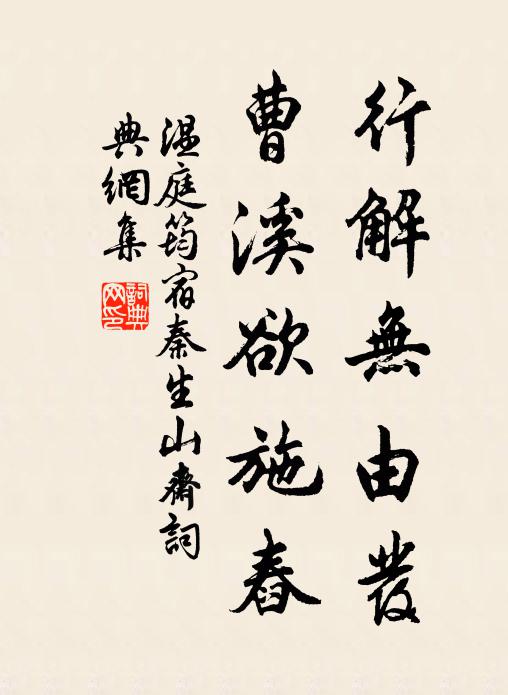 行解無由發
曹溪欲施舂
溫庭筠宿秦生山齋詞
典網集
詞典網印